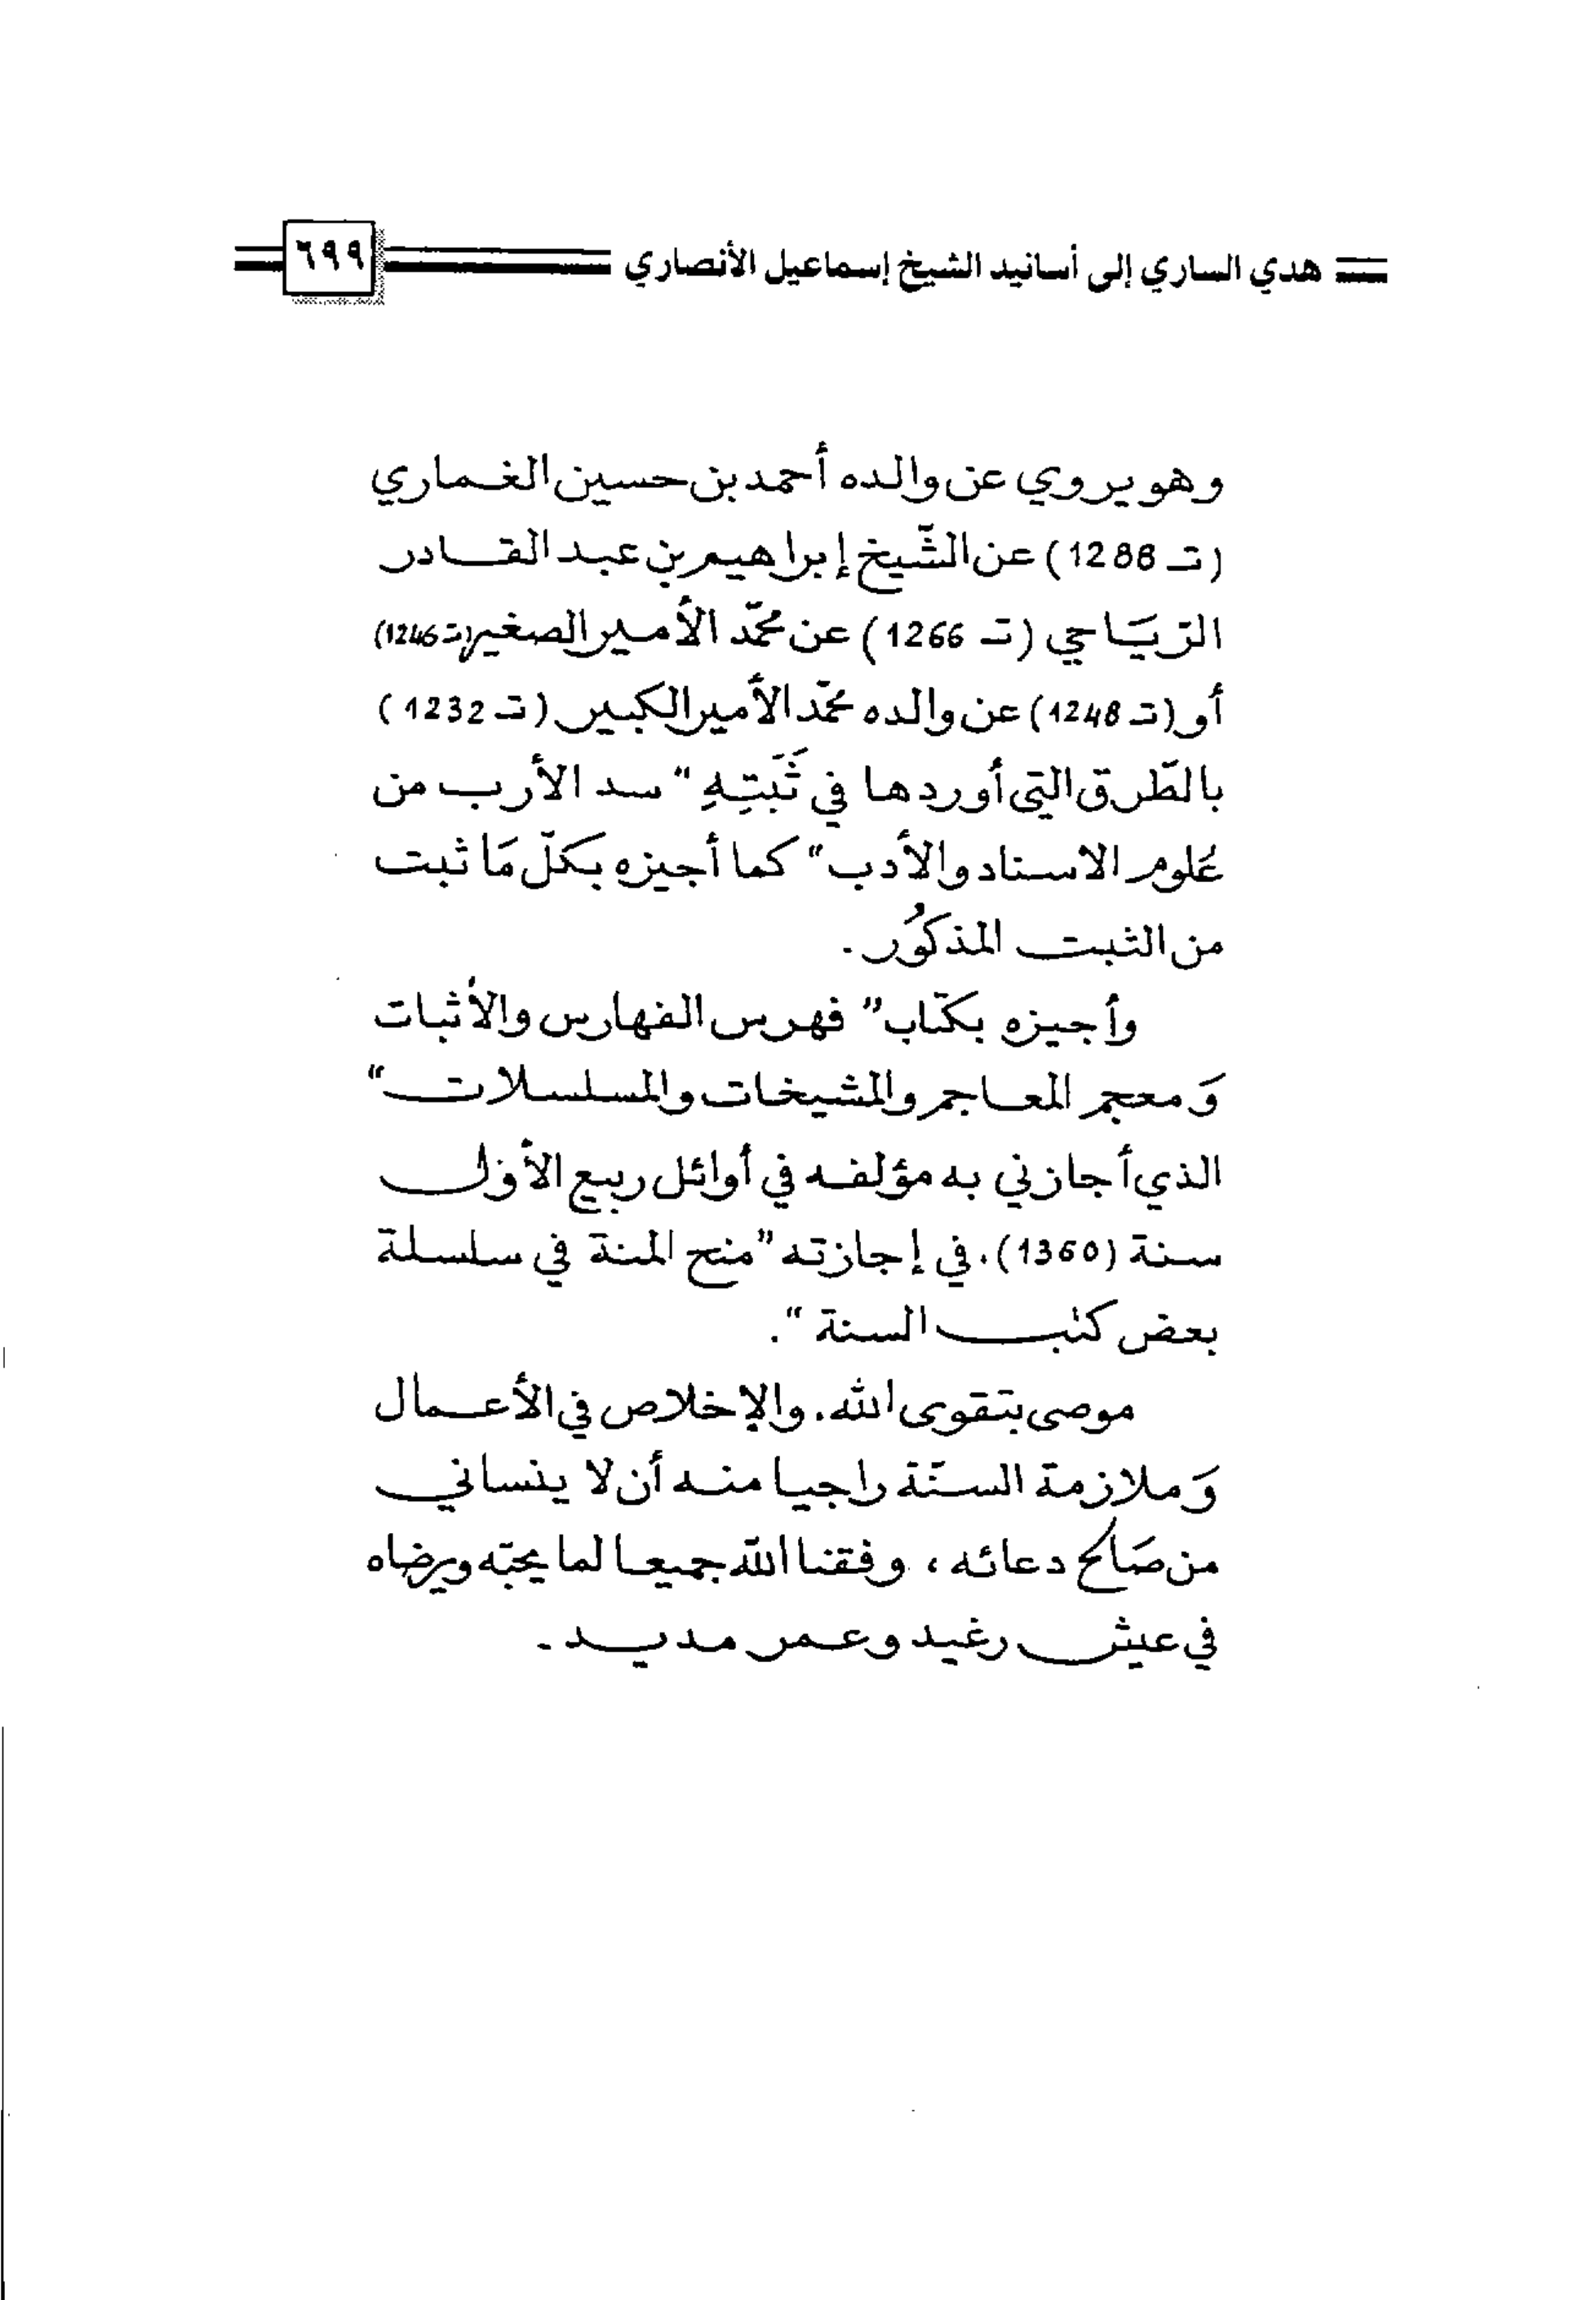 هدي الساري إلى أسانيد الشيخ إسماعيل الأنصاري ٦٩٩
وهو يروي عن والده أحمد بن حسين الغماري
(تـ 1288) عن الشّيخ إبراهيم بن عبد القادر
الرّيَاحي (تـ 1266) عن محمّد الأمير الصغير (تـ 1246)
أو (تـ 1248) عن والده محمّد الأمير الكبير (تـ 1232)
بالطّرق التي أوردها في ثَبَتِهِ "سد الأرب من
علوم الاسناد والأدب" كما أجيزه بكلّ مَا ثبت
من الثبت المذكوُر .
وأجيزه بكتاب "فهرس الفهارس والأثبات
وَمعجم المعاجم والمشيخات والمسلسلات"
الذي أجازني به مؤلفه في أوائل ربيع الأوّل
سنة (1360). في إجازته "منح المنة في سلسلة
بعض كتب السنة".
موصى بتقوى الله. والإخلاص في الأعمال
وَملازمة السنّة راجيا منه أن لا ينساني
من صَالح دعائه ، وفقنا الله جميعا لما يحبّه ويرضاه
في عيش رغيد وعمر مديد .